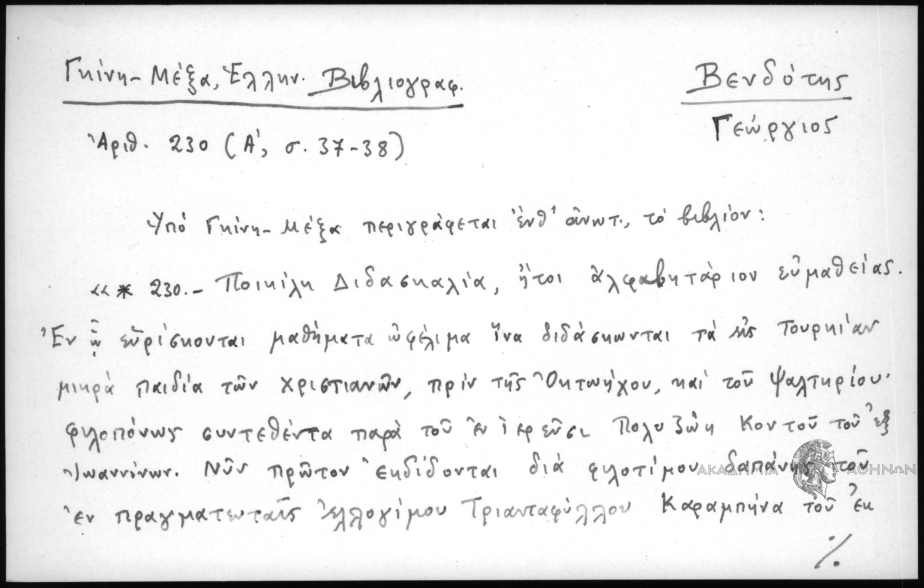 Γκίνη-Μέξα, Ἑλλην. Βιβλιογραφ.
Βενδότης
Γεώργιος
Ἀριθ. 230 (Α', σ. 37-38)
Ὑπό Γκίνη-Μέξα περιγράφεται ἐνθ' ἀνωτ., τό βιβλίον:
«* 230.- Ποικίλη Διδασκαλία, ἤτοι ἀλφαβητάριον εὐμαθείας.
Ἐν ᾧ εὑρίσκονται μαθήματα ὠφέλιμα ἵνα διδάσκωνται τά εἰς Τουρκίαν
μικρά παιδία τῶν χριστιανῶν, πρίν τῆς Ὀκτωήχου, καί τοῦ ψαλτηρίου·
φιλοπόνως συντεθέντα παρά τοῦ ἐν ἱερεῦσι Πολυζώη Κοντοῦ τοῦ ἐξ
Ἰωαννίνων. Νῦν πρῶτον ἐκδίδονται διά φιλοτίμου δαπάνης τοῦ
ΑΚΑΔΗΜΙΑ ΑΘΗΝΩΝ
ἐν πραγματευταῖς ἐλλογίμου Τριανταφύλλου Καραμπήνα τοῦ ἐκ
%